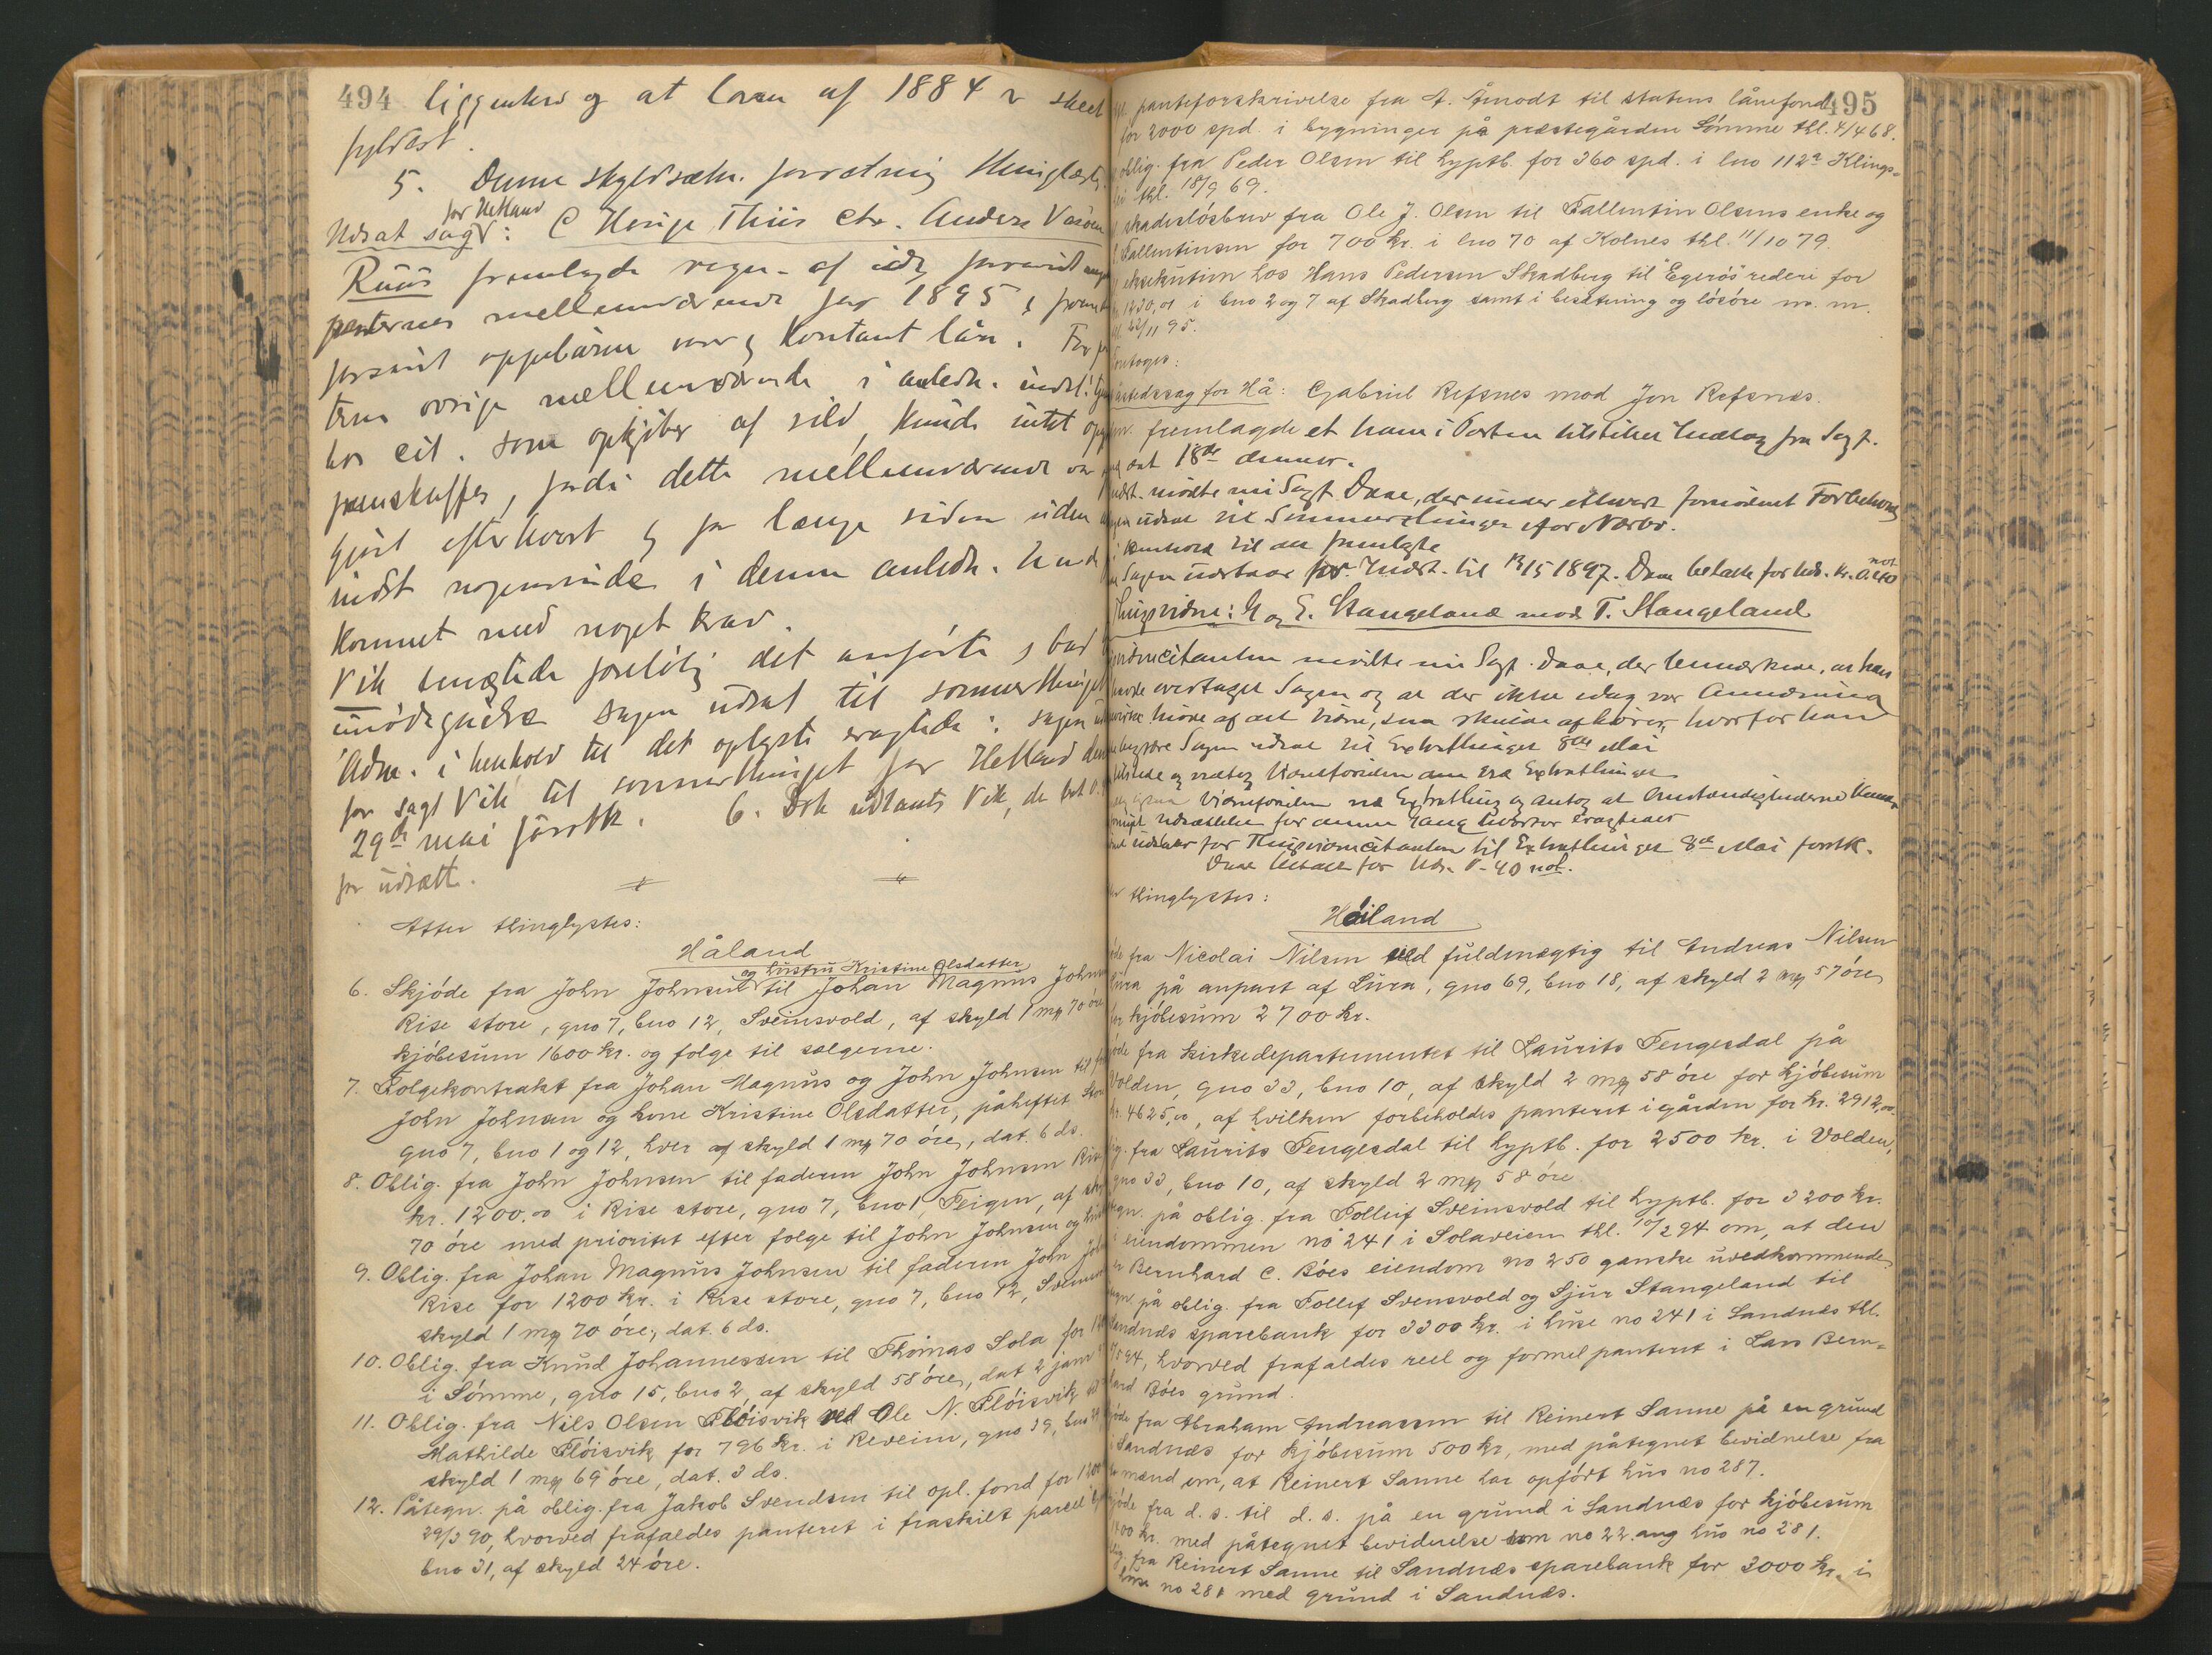 494
liggenhed og at loven af 1884 er skeet
fyldest.
5. Denne skyldsætn. forretning thinglæstes.
for Hetland
Udsat sag: C Hönije Thiis ctr. Anders
Ruus fremlagde regn. af idag
parternes mellemværende for 1895 &
forsaavidt oppebårne varer & kontant lån. For
tens övrige mellemværende i anledn.
hos cit. som opkjöber af sild, kunde intet
fremskaffes, fordi dette mellemværende var
gjort efterhvert & for længe siden uden
indst nogensinde i denne anledn. havde
kommet med noget krav.
Vik benægtede foreløbig det anförte & bad
imödegåelse sagen udsat til sommerthinget
Adm. i henhold til det oplyste eragtede: sagen
for sagf Vik til sommerthinget for Hetland den
29de mai förstk. 6. Dok udlaants Vik, der bet 0.
for udsætt.
Atter thinglystes:
Håland
og hustru Kristine Olsdatter
6. Skjöde fra John Johnsen til Johan Magnus Johns
Rise store, gno 7, bno 12, Sveinsvold, af skyld 1 mrk 70 öre
kjöbesum 1600 kr. og folge til sælgerne.
7. Folgekontrakt fra Johan Magnus og John Johnsen til
John Johnsen og kone Kristine Olsdatter, påheftet
gno 7, bno 1 og 12, hver af skyld 1 mrk 70 öre, dat. 6 ds.
8. Oblig. fra John Johnsen til faderen John Johnsen Rise
kr. 1200.00 i Rise store, gno 7, bno 1 Teigen, af
70 öre med prioritet efter folge til John Johnsen og
9. Oblig. fra Johan Magnus Johnsen til faderen John
Rise for 1200 kr. i Rise store, gno 7, bno 12,
skyld 1 mrk 70 öre, dat. 6 ds.
10. Oblig. fra Knud Johannessen til Thomas Sola for
i Sömme, gno 15, bno 2 af skyld 58 öre, dat 2 janr
11. Oblig. fra Nils Olsen Flöisvik ved Ole N. Flöisvik
Mathilde Flöisvik for 796 kr. i Reveim, gno 39, bno
skyld 1 mrk 69 öre, dat. 3 ds.
12. Påtegn. på oblig. fra Jakob Svendsen til opl. fond for
29/3 90, hvorved frafaldes panteret i fraskilt parsel
bno 31, af skyld 24 öre.
495
panteforskrivelse fra A. Åmodt til statens lånefond
for 2000 spd. i bygninger på præstegården Sömme thl. 4/4 68.
oblig. fra Peder Olsen til hyptb. for 360 spd. i lno 112a Klings=
thl. 18/9 69.
skadeslösbrev fra Ole J. Olsen til Tallentin Olsens enke og
Tallentinsen for 700 kr. i lno 70 af Kolnes thl. 11/10 79.
eksekution hos Hans Pedersen Skadberg til "Egerös" rederi for
i bno 2 og 7 af Skadberg samt i besætning og lösöre m. m.
22/11 95.
Foretoges:
for Hå: Gabriel Refsnes mod Jon Refsnes.
fremlagde et ham i Posten tilstillet Indlæg fra Sagf.
dat 18de dennes.
mödte nu Sagf. Daae, der under ethvert fornödent Forbehold
udsat til Sommerthinget for Nærbö.
i Henhold til det fremlagte
Sagen udstaar for Indst. til 15 1897. Daae betalte for Uds. Kr. 0.40 not.
Thingsvidne: G og E. Stangeland mod T. Stangeland
citanten mödte nu Sagf. Daae, der bemærkede, at han
havde overtaget Sagen og at der ikke idag var Anledning
af det Vidne, som skulde afhöres, hvorfor han
begjære Sagen udsat til Extrathinget 8de Mai
Extrathinget
og antog at Omstændighederne
Udsættelse for denne Gang hvorfor eragtedes
udstaar for Thingsvidnecitanten til Extrathinget 8de Mai förstk.
Daae betalte for Uds. 0-40 not.
thinglystes:
Höiland
fra Nicolai Nilsen ved fuldmægtig til Andreas Nilsen
Lura på anpart af Lura, gno 69, bno 18, af skyld 2 mrk 57 öre
for kjöbesum 2700 kr.
fra kirkedepartementet til Laurits Tengesdal på
Volden, gno 33, bno 10, af skyld 2 mrk 58 öre for kjöbesum
kr. 4625,00, af hvilken forbeholdes panteret i gården for kr. 2912,00.
fra Laurits Tengesdal til hyptb. for 2500 kr. i Volden,
gno 33, bno 10, af skyld 2 mrk 58 öre.
på oblig. fra Tolleif Sveinsvold til hyptb. for 3200 kr.
eiendommen no 241 i Solaveien thl. 10/2 94 om, at den
er Bernhard C. Böes eiendom no 250 ganske uvedkommende.
på oblig. fra Tollef Svensvold og Sjur Stangeland til
Sandnæs sparebank for 3300 kr. i huse no 241 i Sandnæs thl.
94, hvorved frafaldes reel og formel panteret i Lars Bern=
hard Böes grund.
fra Abraham Andreassen til Reinert Sanne på en grund
i Sandnæs for kjöbesum 500 kr, med påtegnet bevidnelse fra
mænd om, at Reinert Sanne har opfört hus no 287.
fra d. s. til d. s. på en grund i Sandnæs for kjöbesum
kr. med påtegnet bevidnelse som no 22. ang hus no 281.
fra Reinert Sanne til Sandnæs sparebank for 3000 kr. i
huse no 281 med grund i Sandnæs.